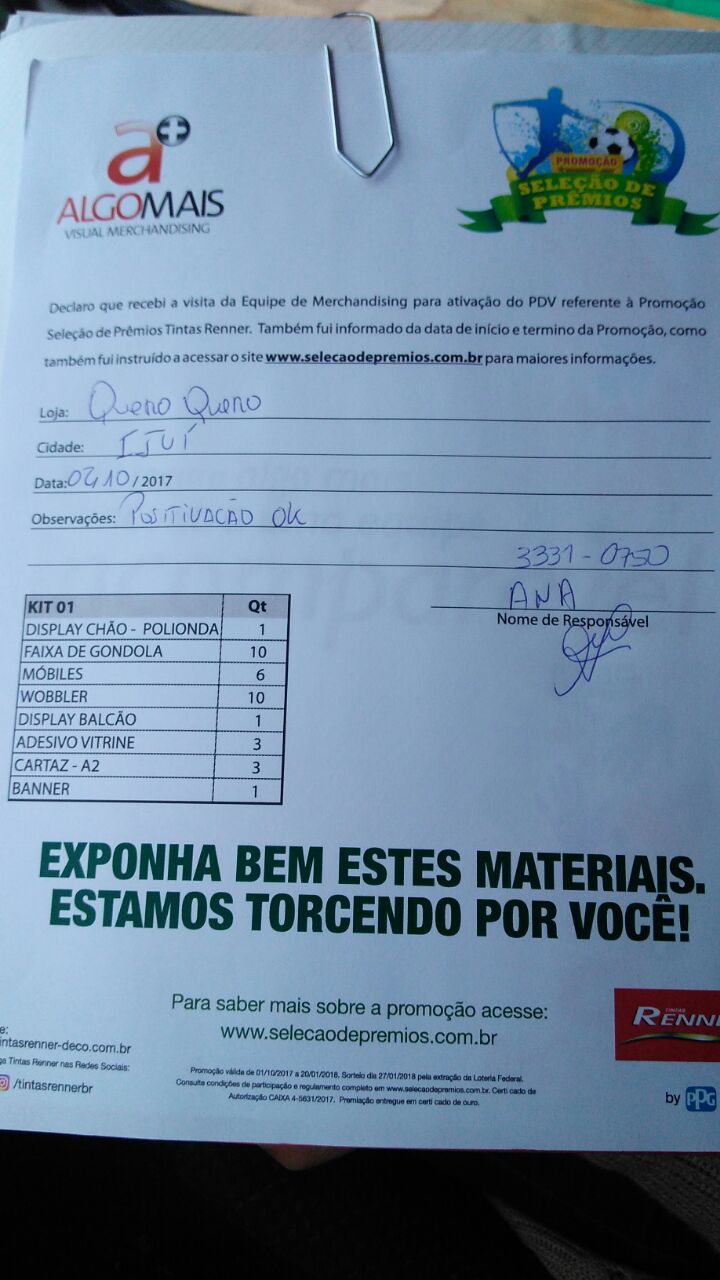 a+
ALGOMAIS
VISUAL MERCHANDISING
PROMOÇÃO
SELEÇÃO DE
PRÊMIOS
Declaro que recebi a visita da Equipe de Merchandising para ativação do PDV referente à Promoção
Seleção de Prêmios Tintas Renner. Também fui informado da data de início e termino da Promoção, como
também fui instruído a acessar o site www.selecaodepremios.com.br para maiores informações.
Loja: Quero Quero
Cidade: IJUÍ
Data: 02/10/2017
Observações: POSITIVAÇÃO OK
3331-0750
ANA
Nome de Responsável
KIT 01 Qt
DISPLAY CHÃO - POLIONDA 1
FAIXA DE GONDOLA 10
MÓBILES 6
WOBBLER 10
DISPLAY BALCÃO 1
ADESIVO VITRINE 3
CARTAZ - A2 3
BANNER 1
EXPONHA BEM ESTES MATERIAIS.
ESTAMOS TORCENDO POR VOCÊ!
Para saber mais sobre a promoção acesse:
www.selecaodepremios.com.br
e:
intasrenner-deco.com.br
ga Tintas Renner nas Redes Sociais:
/tintasrennerbr
Promoção válida de 01/10/2017 a 20/01/2018. Sorteio dia 27/01/2018 pela extração da Loteria Federal.
Consulte condições de participação e regulamento completo em www.selecaodepremios.com.br. Certi cado de
Autorização CAIXA 4-5631/2017. Premiação entregue em certi cado de ouro.
TINTAS
RENN
by PPG